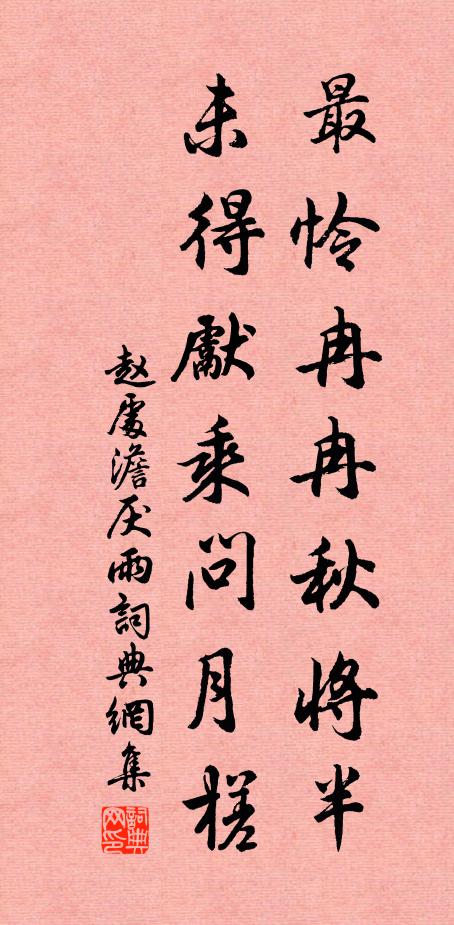 最怜冉冉秋将半
未得献乘问月槎
赵处澹厌雨詞典網集
詞典网印